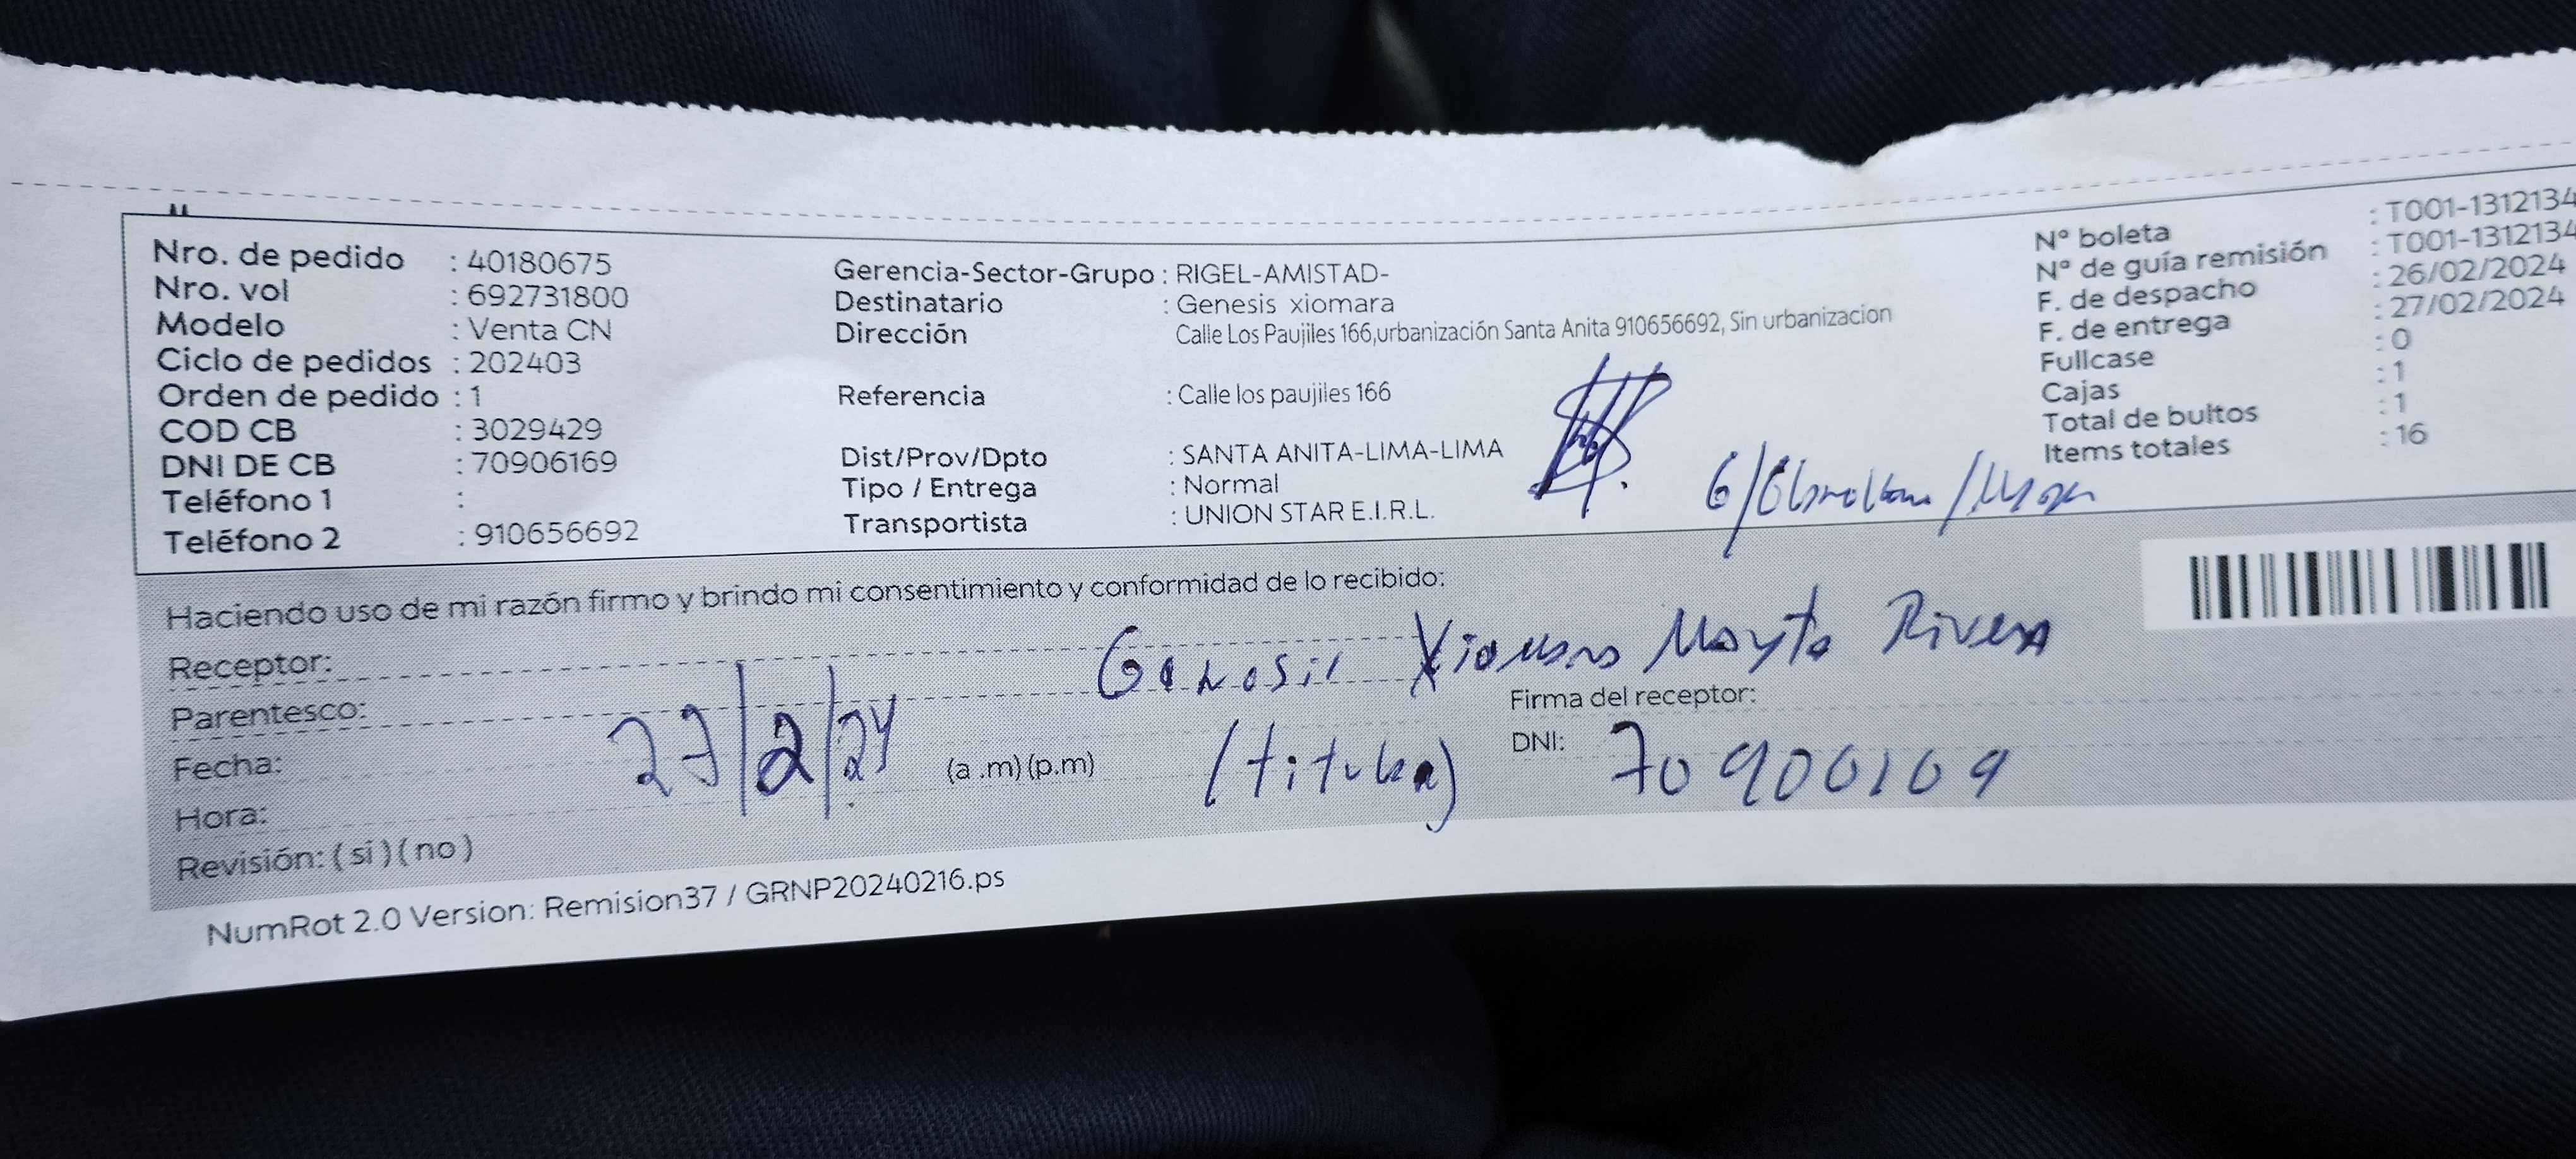 Nro. de pedido : 40180675
Nro. vol : 692731800
Modelo : Venta CN
Ciclo de pedidos : 202403
Orden de pedido : 1
COD CB : 3029429
DNI DE CB : 70906169
Teléfono 1 :
Teléfono 2 : 910656692
Gerencia-Sector-Grupo : RIGEL-AMISTAD-
Destinatario : Genesis xiomara
Dirección Calle Los Paujiles 166,urbanización Santa Anita 910656692, Sin urbanizacion
Referencia : Calle los paujiles 166
Dist/Prov/Dpto : SANTA ANITA-LIMA-LIMA
Tipo / Entrega : Normal
Transportista : UNION STAR E.I.R.L.
N° boleta : T001-1312134
N° de guía remisión : T001-1312134
F. de despacho : 26/02/2024
F. de entrega : 27/02/2024
Fullcase : 0
Cajas : 1
Total de bultos : 1
Items totales : 16
Haciendo uso de mi razón firmo y brindo mi consentimiento y conformidad de lo recibido:
Receptor: Genesis Xiomara Mayta Rivera
Parentesco:
Firma del receptor:
Fecha: 27/2/24 (a .m) (p.m) (titular)
DNI: 70900109
Hora:
Revisión: ( si ) ( no )
NumRot 2.0 Version: Remision37 / GRNP20240216.ps